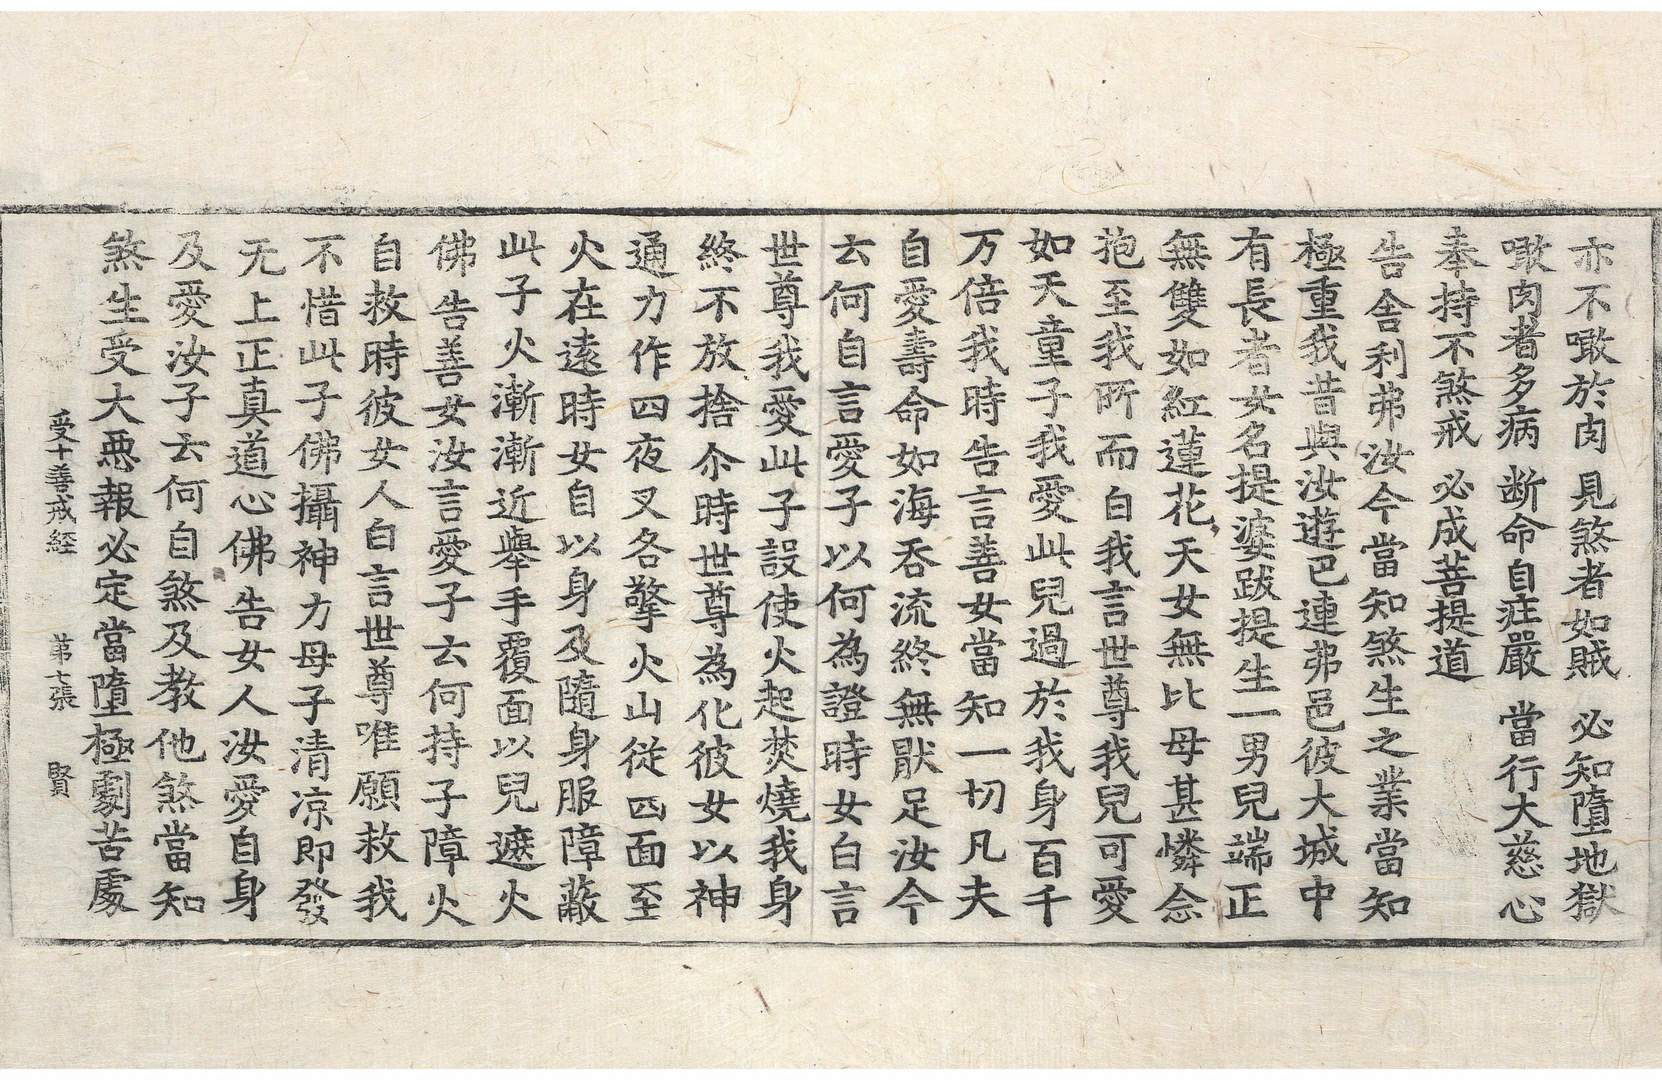 亦不噉於肉 見煞者如賊 必知墮地獄
噉肉者多病 断命自庄嚴 當行大慈心
奉持不煞戒 必成菩提道
告舍利弗汝今當知煞生之業當知
極重我昔與汝遊巴連弗邑彼大城中
有長者女名提婆跋提生一男兒端正
無雙如紅蓮花天女無比母甚憐念
抱至我所而白我言世尊我兒可愛
如天童子我愛此兒過於我身百千
万倍我時告言善女當知一切凡夫
自愛壽命如海吞流終無猒足汝今
云何自言愛子以何為證時女白言
世尊我愛此子設使火起焚燒我身
終不放捨尒時世尊為化彼女以神
通力作四夜叉各擎火山從四面至
火在遠時女自以身及隨身服障蔽
此子火漸漸近舉手覆面以兒遮火
佛告善女汝言愛子云何持子障火
自救時彼女人白言世尊唯願救我
不惜此子佛攝神力母子清凉即發
无上正真道心佛告女人汝愛自身
及愛汝子云何自煞及教他煞當知
煞生受大惡報必定當墮極劇苦處
受十善戒経 第七張 賢